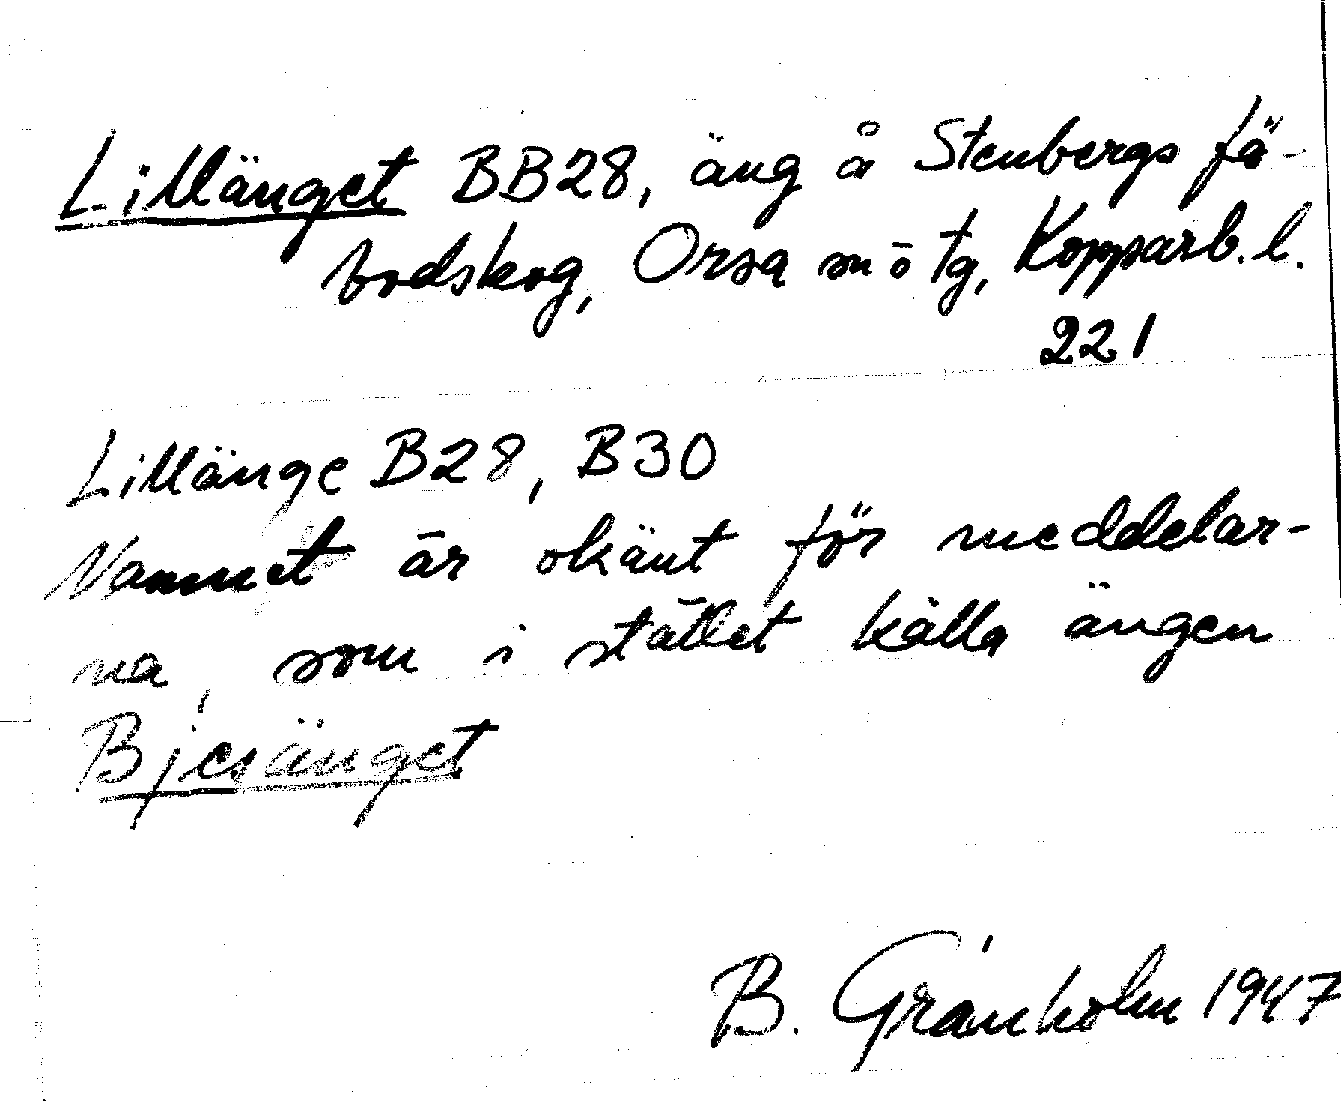 Lillänget BB28, äng å Stenbergs fä-
bodskog, Orsa sn ö tg, Kopparb. l.
221
Lillänge B28, B30
Namnet är okänt för meddelar-
na, som i stället kalla ängen
Bjesänget
B. Granholm 1947